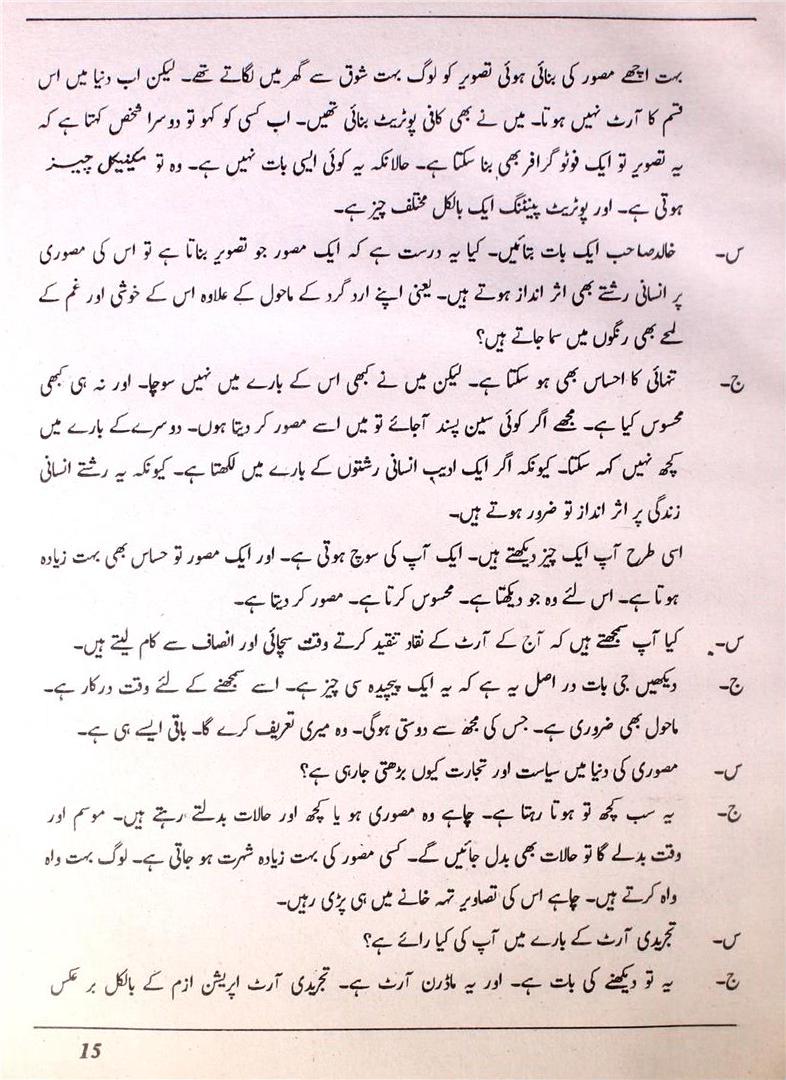 بہت اچھے مصور کی بنائی ہوئی تصویر کو لوگ بہت شوق سے گھر میں لگاتے تھے۔ لیکن اب دنیا میں اس
قسم کا آرٹ نہیں ہوتا۔ میں نے بھی کافی پوٹریٹ بنائی تھیں۔ اب کسی کو کہو تو دوسرا شخص کہتا ہے کہ
یہ تصویر تو ایک فوٹو گرافر بھی بنا سکتا ہے۔ حالانکہ یہ کوئی ایسی بات نہیں ہے۔ وہ تو مکینیکل چیز
ہوتی ہے۔ اور پوٹریٹ پینٹنگ ایک بالکل مختلف چیز ہے۔
س۔ خالد صاحب ایک بات بتائیں۔ کیا یہ درست ہے کہ ایک مصور جو تصویر بناتا ہے تو اس کی مصوری
پر انسانی رشتے بھی اثر انداز ہوتے ہیں۔ یعنی اپنے ارد گرد کے ماحول کے علاوہ اس کے خوشی اور غم کے
لمحے بھی رنگوں میں سما جاتے ہیں؟
ج۔ تنہائی کا احساس بھی ہو سکتا ہے۔ لیکن میں نے کبھی اس کے بارے میں نہیں سوچا۔ اور نہ ہی کبھی
محسوس کیا ہے۔ مجھے اگر کوئی سین پسند آجائے تو میں اسے مصور کر دیتا ہوں۔ دوسرے کے بارے میں
کچھ نہیں کہہ سکتا۔ کیونکہ اگر ایک ادیب انسانی رشتوں کے بارے میں لکھتا ہے۔ کیونکہ یہ رشتے انسانی
زندگی پر اثر انداز تو ضرور ہوتے ہیں۔
اسی طرح آپ ایک چیز دیکھتے ہیں۔ ایک آپ کی سوچ ہوتی ہے۔ اور ایک مصور تو حساس بھی بہت زیادہ
ہوتا ہے۔ اس لئے وہ جو دیکھتا ہے۔ محسوس کرتا ہے۔ مصور کر دیتا ہے۔
س۔ کیا آپ سمجھتے ہیں کہ آج کے آرٹ کے نقاد تنقید کرتے وقت سچائی اور انصاف سے کام لیتے ہیں۔
ج۔ دیکھیں جی بات در اصل یہ ہے کہ یہ ایک پیچیدہ سی چیز ہے۔ اسے سمجھنے کے لئے وقت درکار ہے۔
ماحول بھی ضروری ہے۔ جس کی مجھ سے دوستی ہوگی۔ وہ میری تعریف کرے گا۔ باقی ایسے ہی ہے۔
س۔ مصوری کی دنیا میں سیاست اور تجارت کیوں بڑھتی جارہی ہے؟
ج۔ یہ سب کچھ تو ہوتا رہتا ہے۔ چاہے وہ مصوری ہو یا کچھ اور حالات بدلتے رہتے ہیں۔ موسم اور
وقت بدلے گا تو حالات بھی بدل جائیں گے۔ کسی مصور کی بہت زیادہ شہرت ہو جاتی ہے۔ لوگ بہت واہ
واہ کرتے ہیں۔ چاہے اس کی تصاویر تہہ خانے میں ہی پڑی رہیں۔
س۔ تجریدی آرٹ کے بارے میں آپ کی کیا رائے ہے؟
ج۔ یہ تو دیکھنے کی بات ہے۔ اور یہ ماڈرن آرٹ ہے۔ تجریدی آرٹ اپریشن ازم کے بالکل بر عکس
15